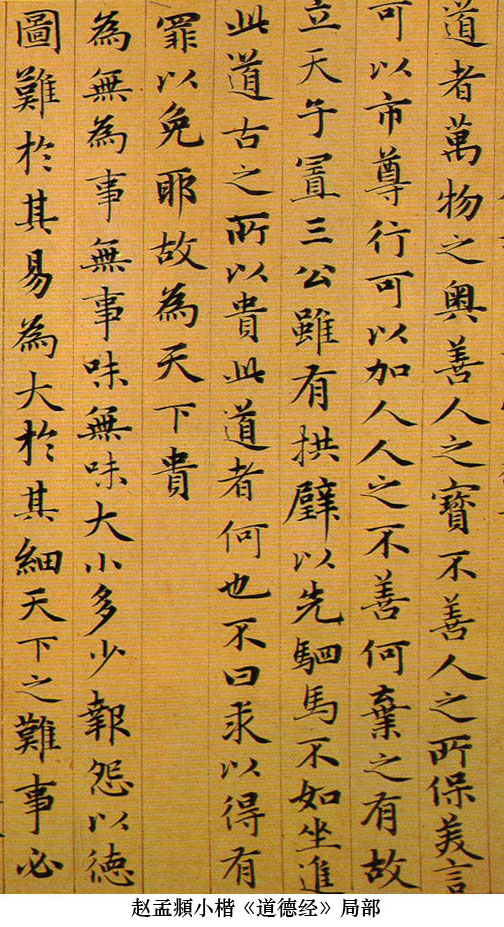 道者萬物之奥善人之寶不善人之所保美言
可以市尊行可以加人人之不善何棄之有故
立天子置三公雖有拱璧以先駟馬不如坐進
此道古之所以貴此道者何也不曰求以得有
罪以免耶故為天下貴
為無為事無事味無味大小多少報怨以徳
圖難於其易為大於其細天下之難事必
赵孟頫小楷《道德经》局部